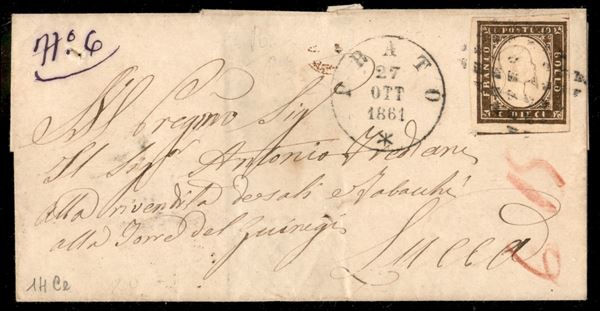 N.º 6
PRATO
27
OTT
1861
C. POSTE 10
FRANCO
BOLLO
C. DIECI
All Pregmo Sigr
Il Sigr Antonio Frediani
alla rivendita de sali e Tabacchi
alla Torre del Guinigi
Lucca
14 Ce